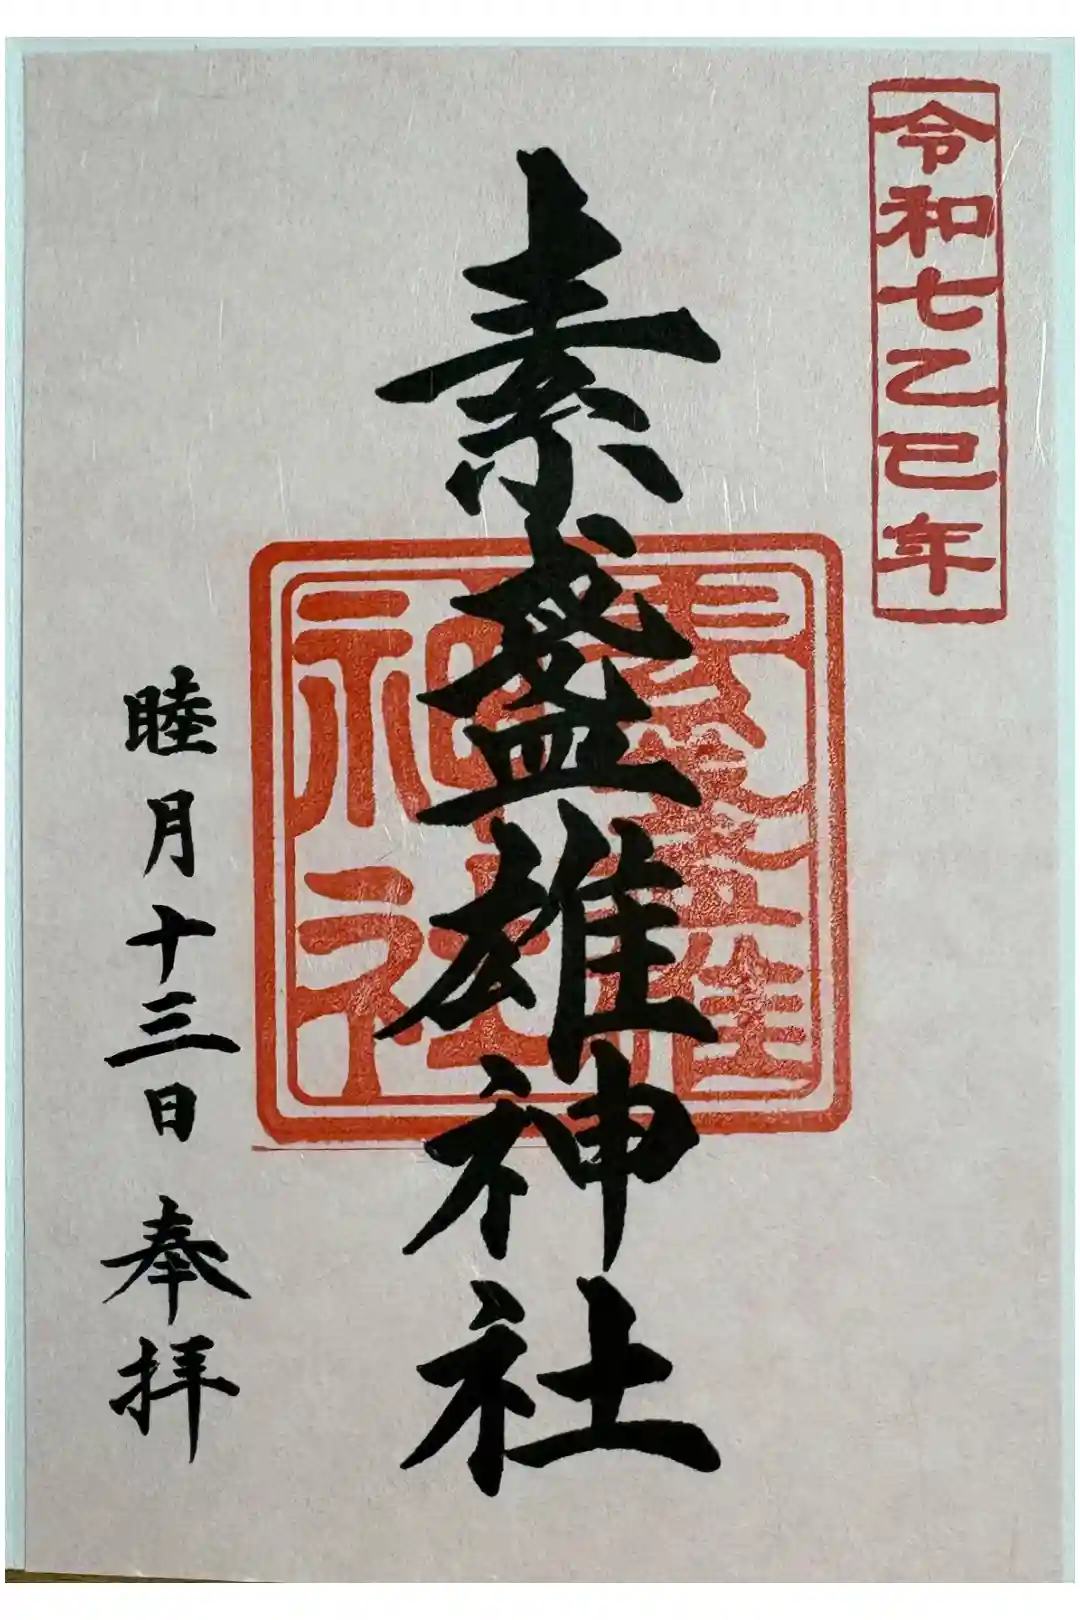 令和七乙巳年
素盞雄神社
素盞雄神社
睦月十三日 奉拝